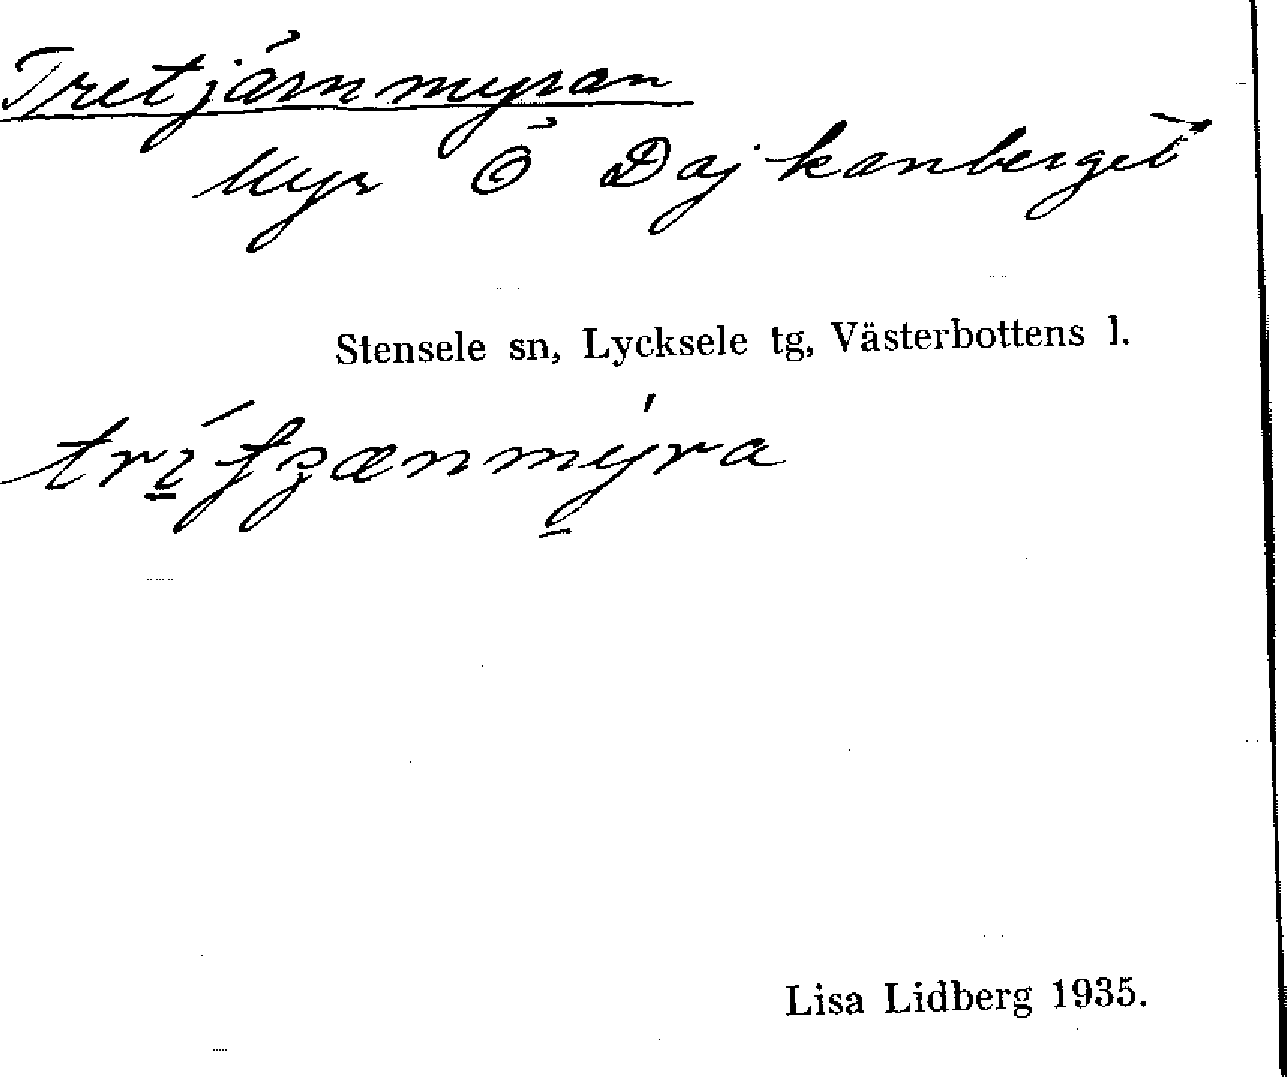 Tretjärnmyran
Myr Ö Dajkanberget
Stensele sn, Lycksele tg, Västerbottens l.
Lisa Lidberg 1935.